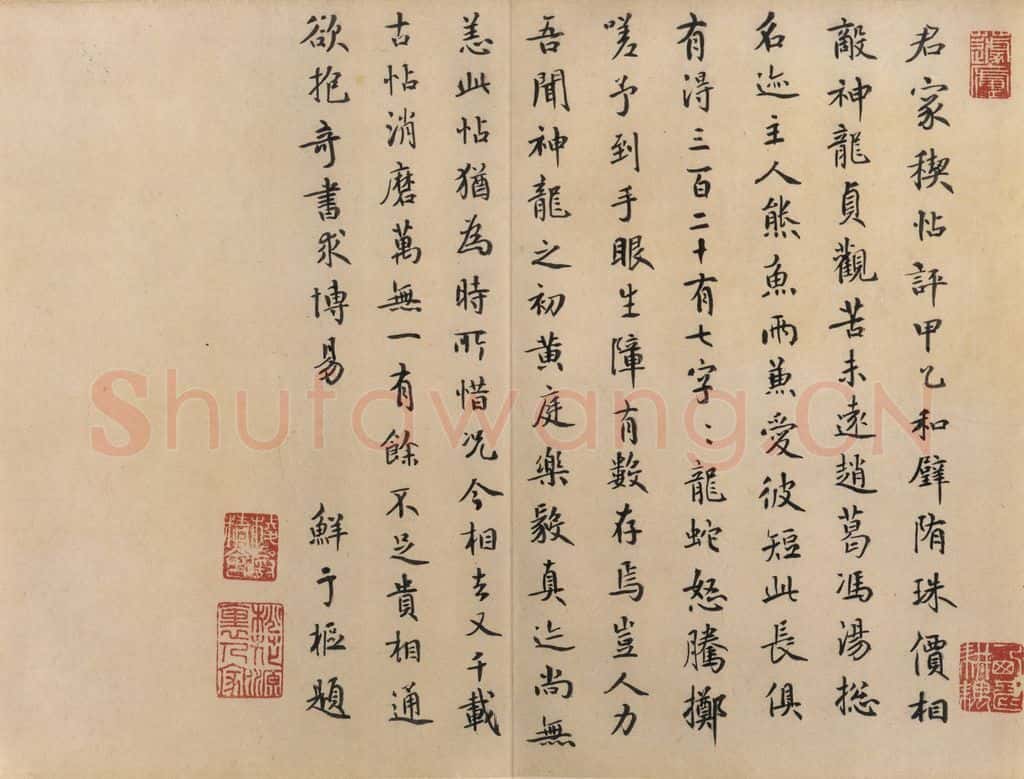 君家稧帖評甲乙和璧隋珠價相
敵神龍貞觀苦未遠趙葛馮湯揔
名迹主人熊魚兩兼愛彼短此長俱
有得三百二十有七字〻龍蛇怒騰擲
嗟予到手眼生障有數存焉豈人力
吾聞神龍之初黄庭樂毅真迹尚無
恙此帖猶為時所惜况今相去又千載
古帖消磨萬無一有餘不足貴相通
欲抱奇書求博易 鮮于樞題
Shufawang.CN